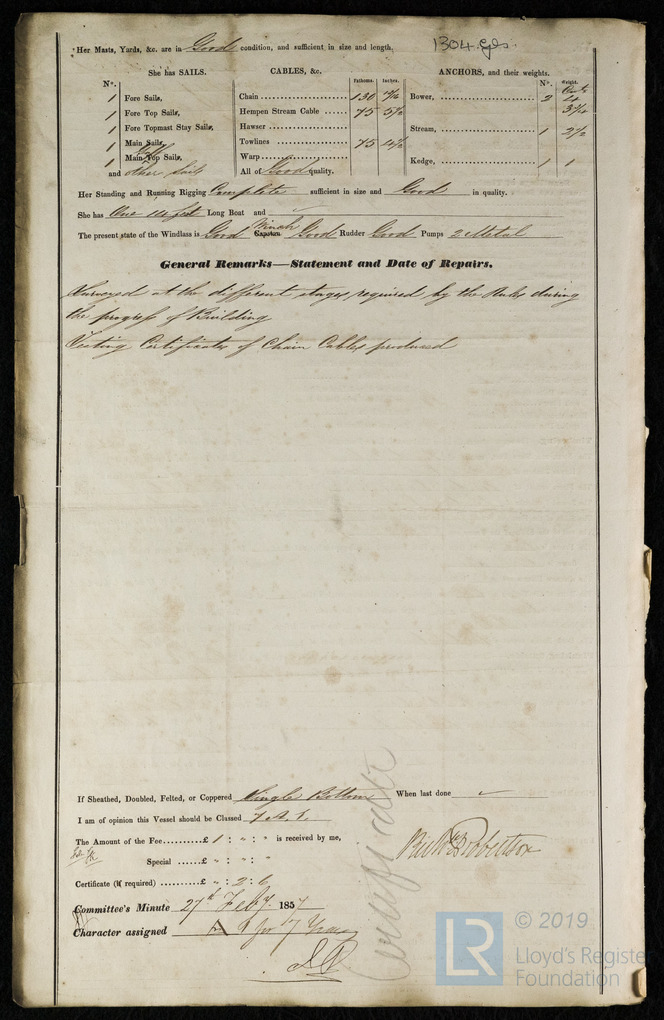 1304 Gls.
Her Masts, Yards, &c. are in Good condition, and sufficient in size and length.
She has SAILS.
N°.
1 Fore Sails,
1 Fore Top Sails,
1 Fore Topmast Stay Sails,
1 Main Sails,
1 Main Gaff Top Sails,
and other Sails
CABLES, &c.
Fathoms. Inches.
Chain 130
Hempen Stream Cable 75 5½
Hawser
Towlines 75 4½
Warp
All of Good quality.
ANCHORS, and their weights.
N°. Weight.
Bower, 2 4
3¾
Stream, 1 2½
Kedge, 1 1
Her Standing and Running Rigging Complete sufficient in size and Good in quality.
She has One Long Boat and
The present state of the Windlass is Good Capstan Winch Good Rudder Good Pumps 2 Metal
General Remarks—Statement and Date of Repairs.
Surveyed at the different stages required by the Rules during
the progress of Building
Testing Certificates of Chain Cables produced
If Sheathed, Doubled, Felted, or Coppered Single Bottom When last done
I am of opinion this Vessel should be Classed 7 A. 1.
The Amount of the Fee £ 1 : " : " is received by me,
Special £ " : " : "
Certificate (if required) £ " : 2 : 6
Robertson
Committee's Minute 27th Feby. 1857
Character assigned A 1 for 7 Years
© 2019
LR
Lloyd's Register
Foundation